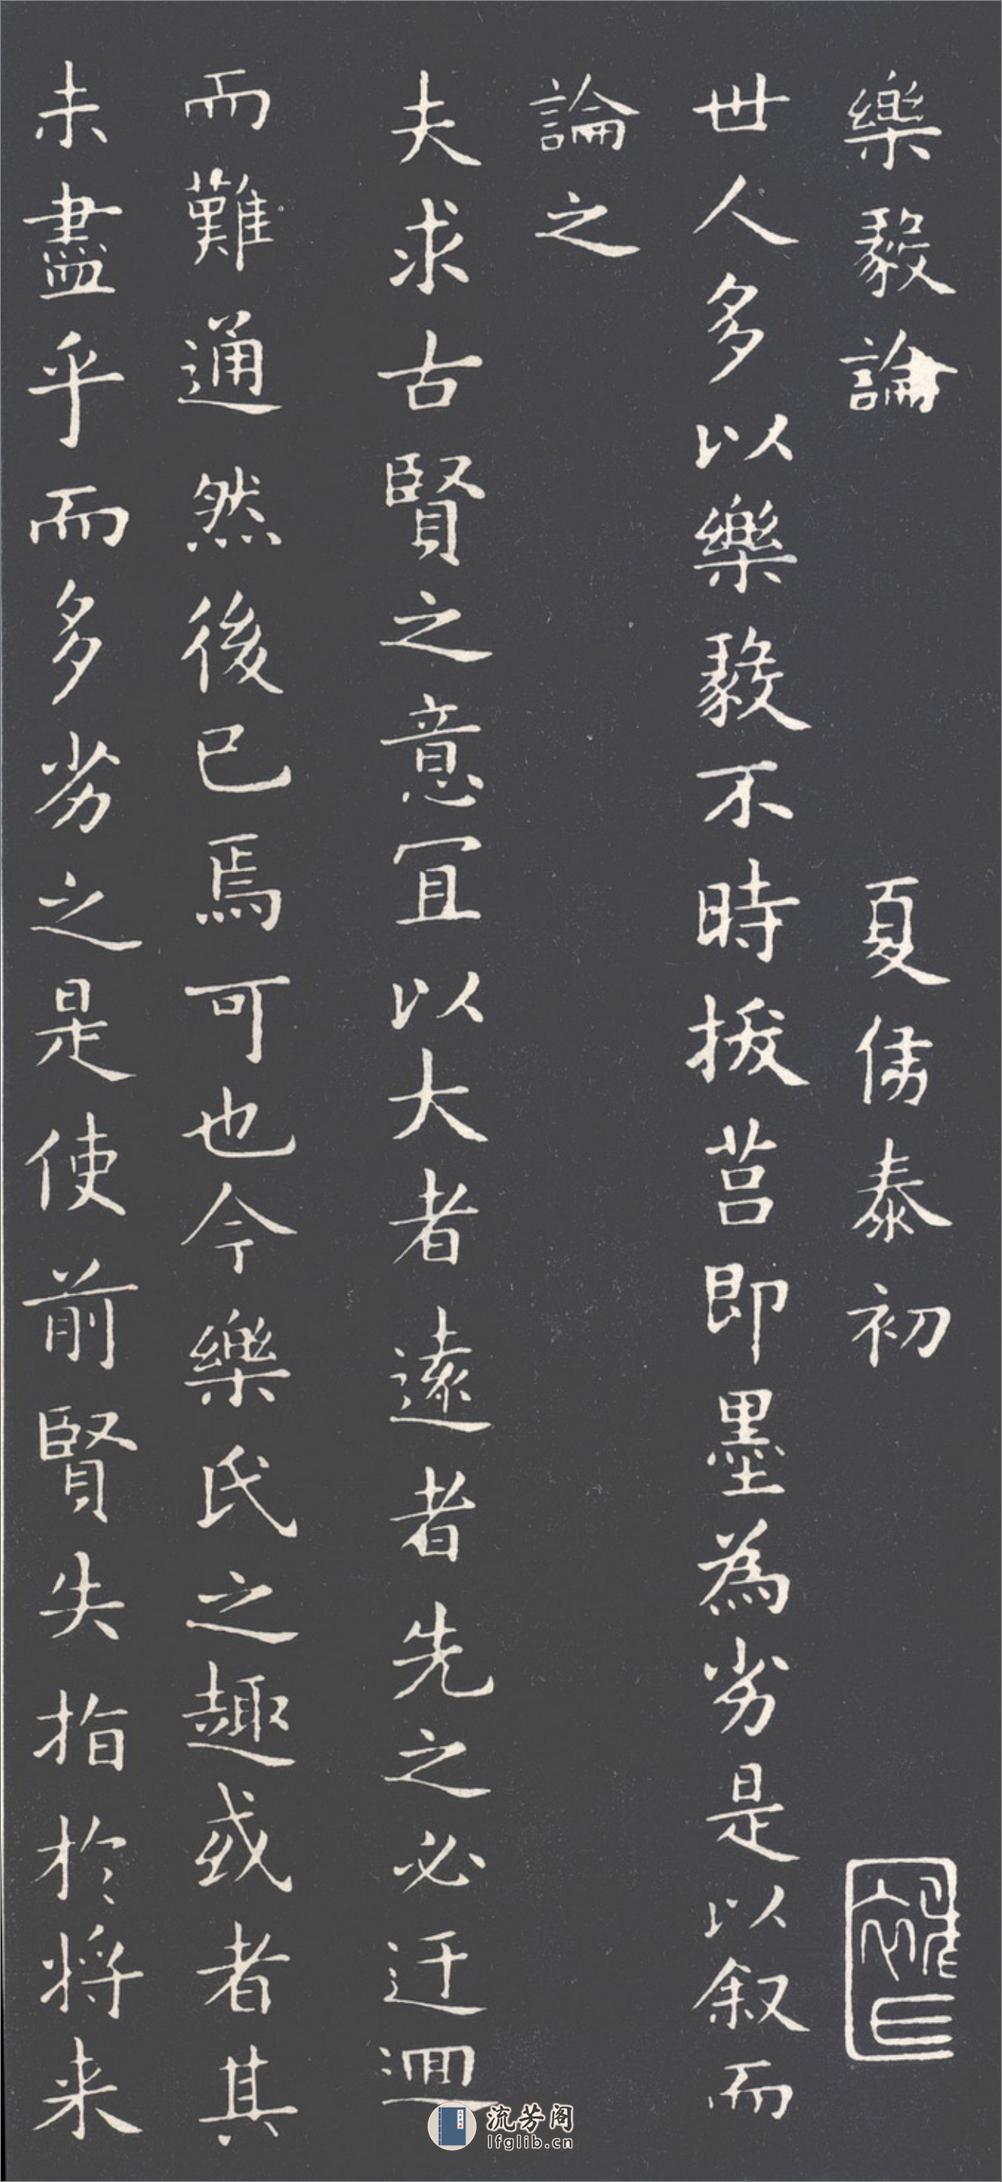 樂毅論 夏侯泰初
世人多以樂毅不時拔莒即墨為劣是以叙而
論之
夫求古賢之意宜以大者遠者先之必迂迴
而難通然後已焉可也今樂氏之趣或者其
未盡乎而多劣之是使前賢失指於将来
流芳阁
lfglib.cn